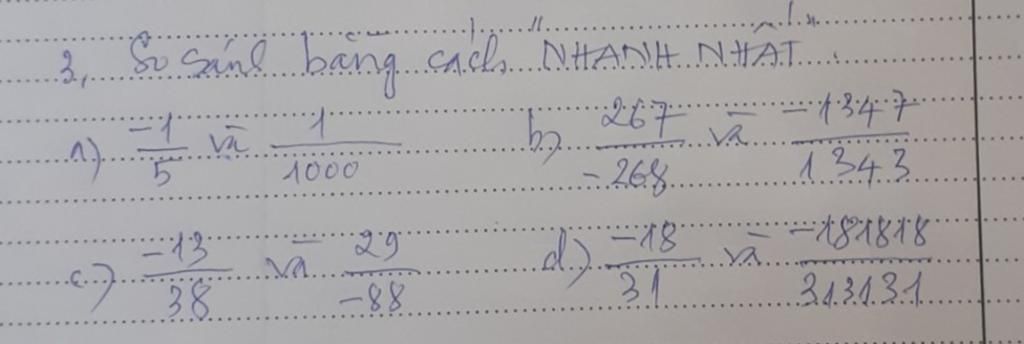 3, So sánh bằng cách "NHANH NHẤT".
a) -1/5 và 1/1000 b) 267/-268 và -1347/1343
c) -13/38 và 29/-88 d.) -18/31 và -181818/313131